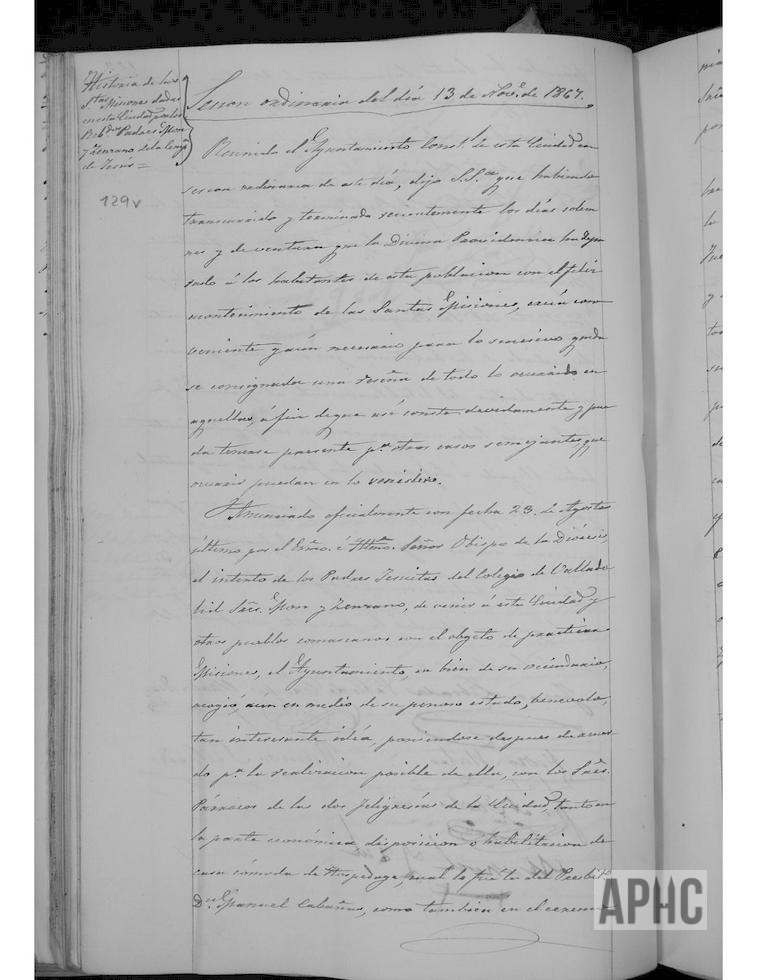 Historia de las
Stas Misiones dadas
en esta Ciudad por los
Rvdos Padres Mon
y Zenzano de la Compa
de Jesús=
129v
Sesion ordinaria del día 13 de Nove. de 1867.
Reunido el Ayuntamiento Consl. de esta Ciudad en
sesion ordinaria de este día, dijo S.Sa. que habiendo
transcurrido y terminado recientemente los días solem
nes y de ventura que la Divina Providencia ha depa
rado á los habitantes de esta poblacion con el feliz
acontecimiento de las Santas Misiones, creía con
veniente y aún necesario para lo sucesivo quede
se consignada una reseña de todo lo ocurrido en
aquellas, á fin de que así conste devidamente y pue
da tenerse presente pa. otros casos semejantes que
ocurrir puedan en lo venidero.
Anunciado oficialmente con fecha 23. de Agosto
último por el Exmo. é Iltmo. Señor Obispo de la Diócesis
el intento de los Padres Jesuitas del Colegio de Vallado
lid Sres. Mon y Zenzano, de venir á esta Ciudad y
otros pueblos comarcanos con el objeto de practicar
Misiones, el Ayuntamiento, en bien de su vecindario,
acogió, aun en medio de su penoso estado, benevolo,
tan interesante idéa, poniendose despues de acuer
do pa. la realizacion posible de ella, con los Sres.
Parrocos de las dos feligresías de la Ciudad, tanto en
la parte económica, disposicion o habilitacion de
casa cómoda de Hospedage, cual lo fué la del Presbo.
Dn. Manuel Cabañas, como tambien en el ceremo
APHC